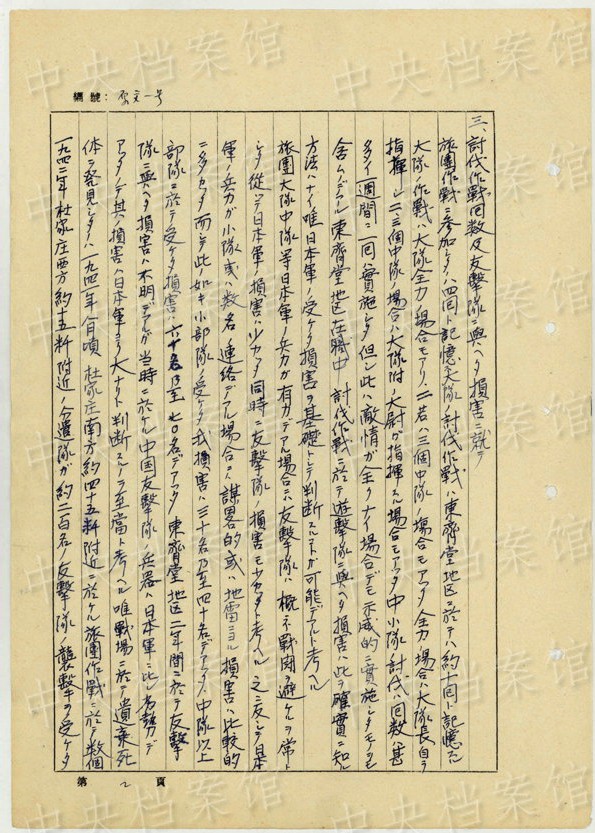 中央档案馆
編號：原文一号
三、討伐作戰回数及友擊隊ニ與ヘタ損害ニ就テ
旅團作戰ニ参加シタハ四回ト記憶ス 大隊ノ討伐作戰ハ東齊堂地区ニ於テハ約十回ト記憶ス
大隊ノ作戰ハ大隊全力ノ場合モアリ、二若ハ三個中隊ノ場合モアッタ 全力ノ場合ハ大隊長自ラ
指揮シ 二、三個中隊ノ場合ハ大隊附ノ大尉ガ指揮スル場合モアッタ 中小隊ノ討伐ハ回数ハ甚
多ク一週間ニ一回實施シタ 但シ此ハ敵情ガ全クナイ場合デモ示威的ニ實施シタモノヲモ
含ムノデアル 東齊堂地区在職中 討伐作戰ニ於テ遊擊隊ニ與ヘタ損害ハ此ヲ確實ニ知ル
方法ハナイ 唯日本軍ノ受ケタ損害ヲ基礎トシテ判断スルコトガ可能デアルト考ヘル
旅團大隊中隊等日本軍ノ兵力ガ有力デアル場合ニハ友擊隊ハ概ネ戰閗ヲ避ケルヲ常ト
シタ 從ッテ日本軍ノ損害ハ少カッタ 同時ニ友擊隊ノ損害モ少カッタト考ヘル 之ニ反シテ日本
軍ノ兵力ガ小隊或ハ数名ノ連絡デアル場合ニハ謀畧的或ハ地雷ニヨル損害ハ比較的
ニ多カッタ 而シテ此ノ如キ小部隊ノ受ケタ我損害ハ三十名乃至四十名デアッタ 中隊以上ノ
部隊ニ於テ受ケタ損害ハ六十名乃至七〇名デアッタ 東齊堂地区二年間ニ於テ友擊
隊ニ與ヘタ損害ハ不明デアルガ当時ニ於ケル中国友擊隊ノ兵器ハ日本軍ニ比シ劣勢デ
アッタノデ其ノ損害ハ日本軍ヨリ大ナリト判断スルノヲ至當ト考ヘル 唯戰場ニ於テ遺棄死
体ヲ発見シタノハ一九四一年八月頃 杜家庄南方約四十五粁附近ニ於ケル旅團作戰ニ於テ数個
一九四二年杜家庄西方約十五粁附近ノ分遣隊ガ約二百名ノ友擊隊ノ襲擊ヲ受ケタ
第 2 頁